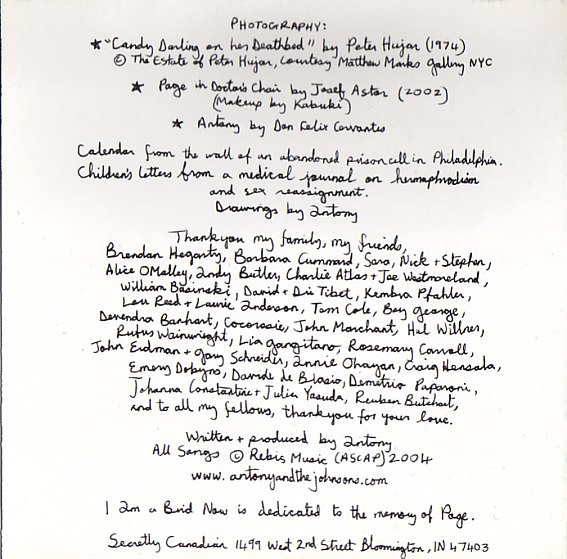 PHOTOGRAPHY:
★ "Candy Darling on her Deathbed" by Peter Hujar (1974)
© The Estate of Peter Hujar, courtesy Matthew Marks Gallery NYC
★ Page in Doctor's Chair by Josef Astor (2002)
(Makeup by Kabuki)
★ Antony by Don Felix Cervantes
Calendar from the wall of an abandoned prison cell in Philadelphia.
Children's letters from a medical journal on hermaphrodism
and sex reassignment.
Drawings by Antony
Thankyou my family, my friends,
Brendan Hegarty, Barbara Cummard, Sara, Nick + Stephen,
Alice OMalley, Andy Butler, Charlie Atlas + Joe Westmoreland,
William Basinski, David + Dii Tibet, Kembra Pfahler,
Lou Reed + Laurie Anderson, Tom Cole, Boy George,
Devendra Banhart, Cocorosie, John Marchant, Hal Willner,
Rufus Wainwright, Lia Gangitano, Rosemary Carroll,
John Erdman + Gary Schneider, Annie Ohayon, Craig Hensala,
Emery Dobyns, Davide de Blasio, Demetrio Paparoni,
Johanna Constantine + Julia Yasuda, Reuben Butchart,
and to all my fellows, thankyou for your love.
Written + produced by Antony
All Songs © Rebis Music (ASCAP) 2004
www.antonyandthejohnsons.com
I Am a Bird Now is dedicated to the memory of Page.
Secretly Canadian 1499 West 2nd Street Bloomington, IN 47403